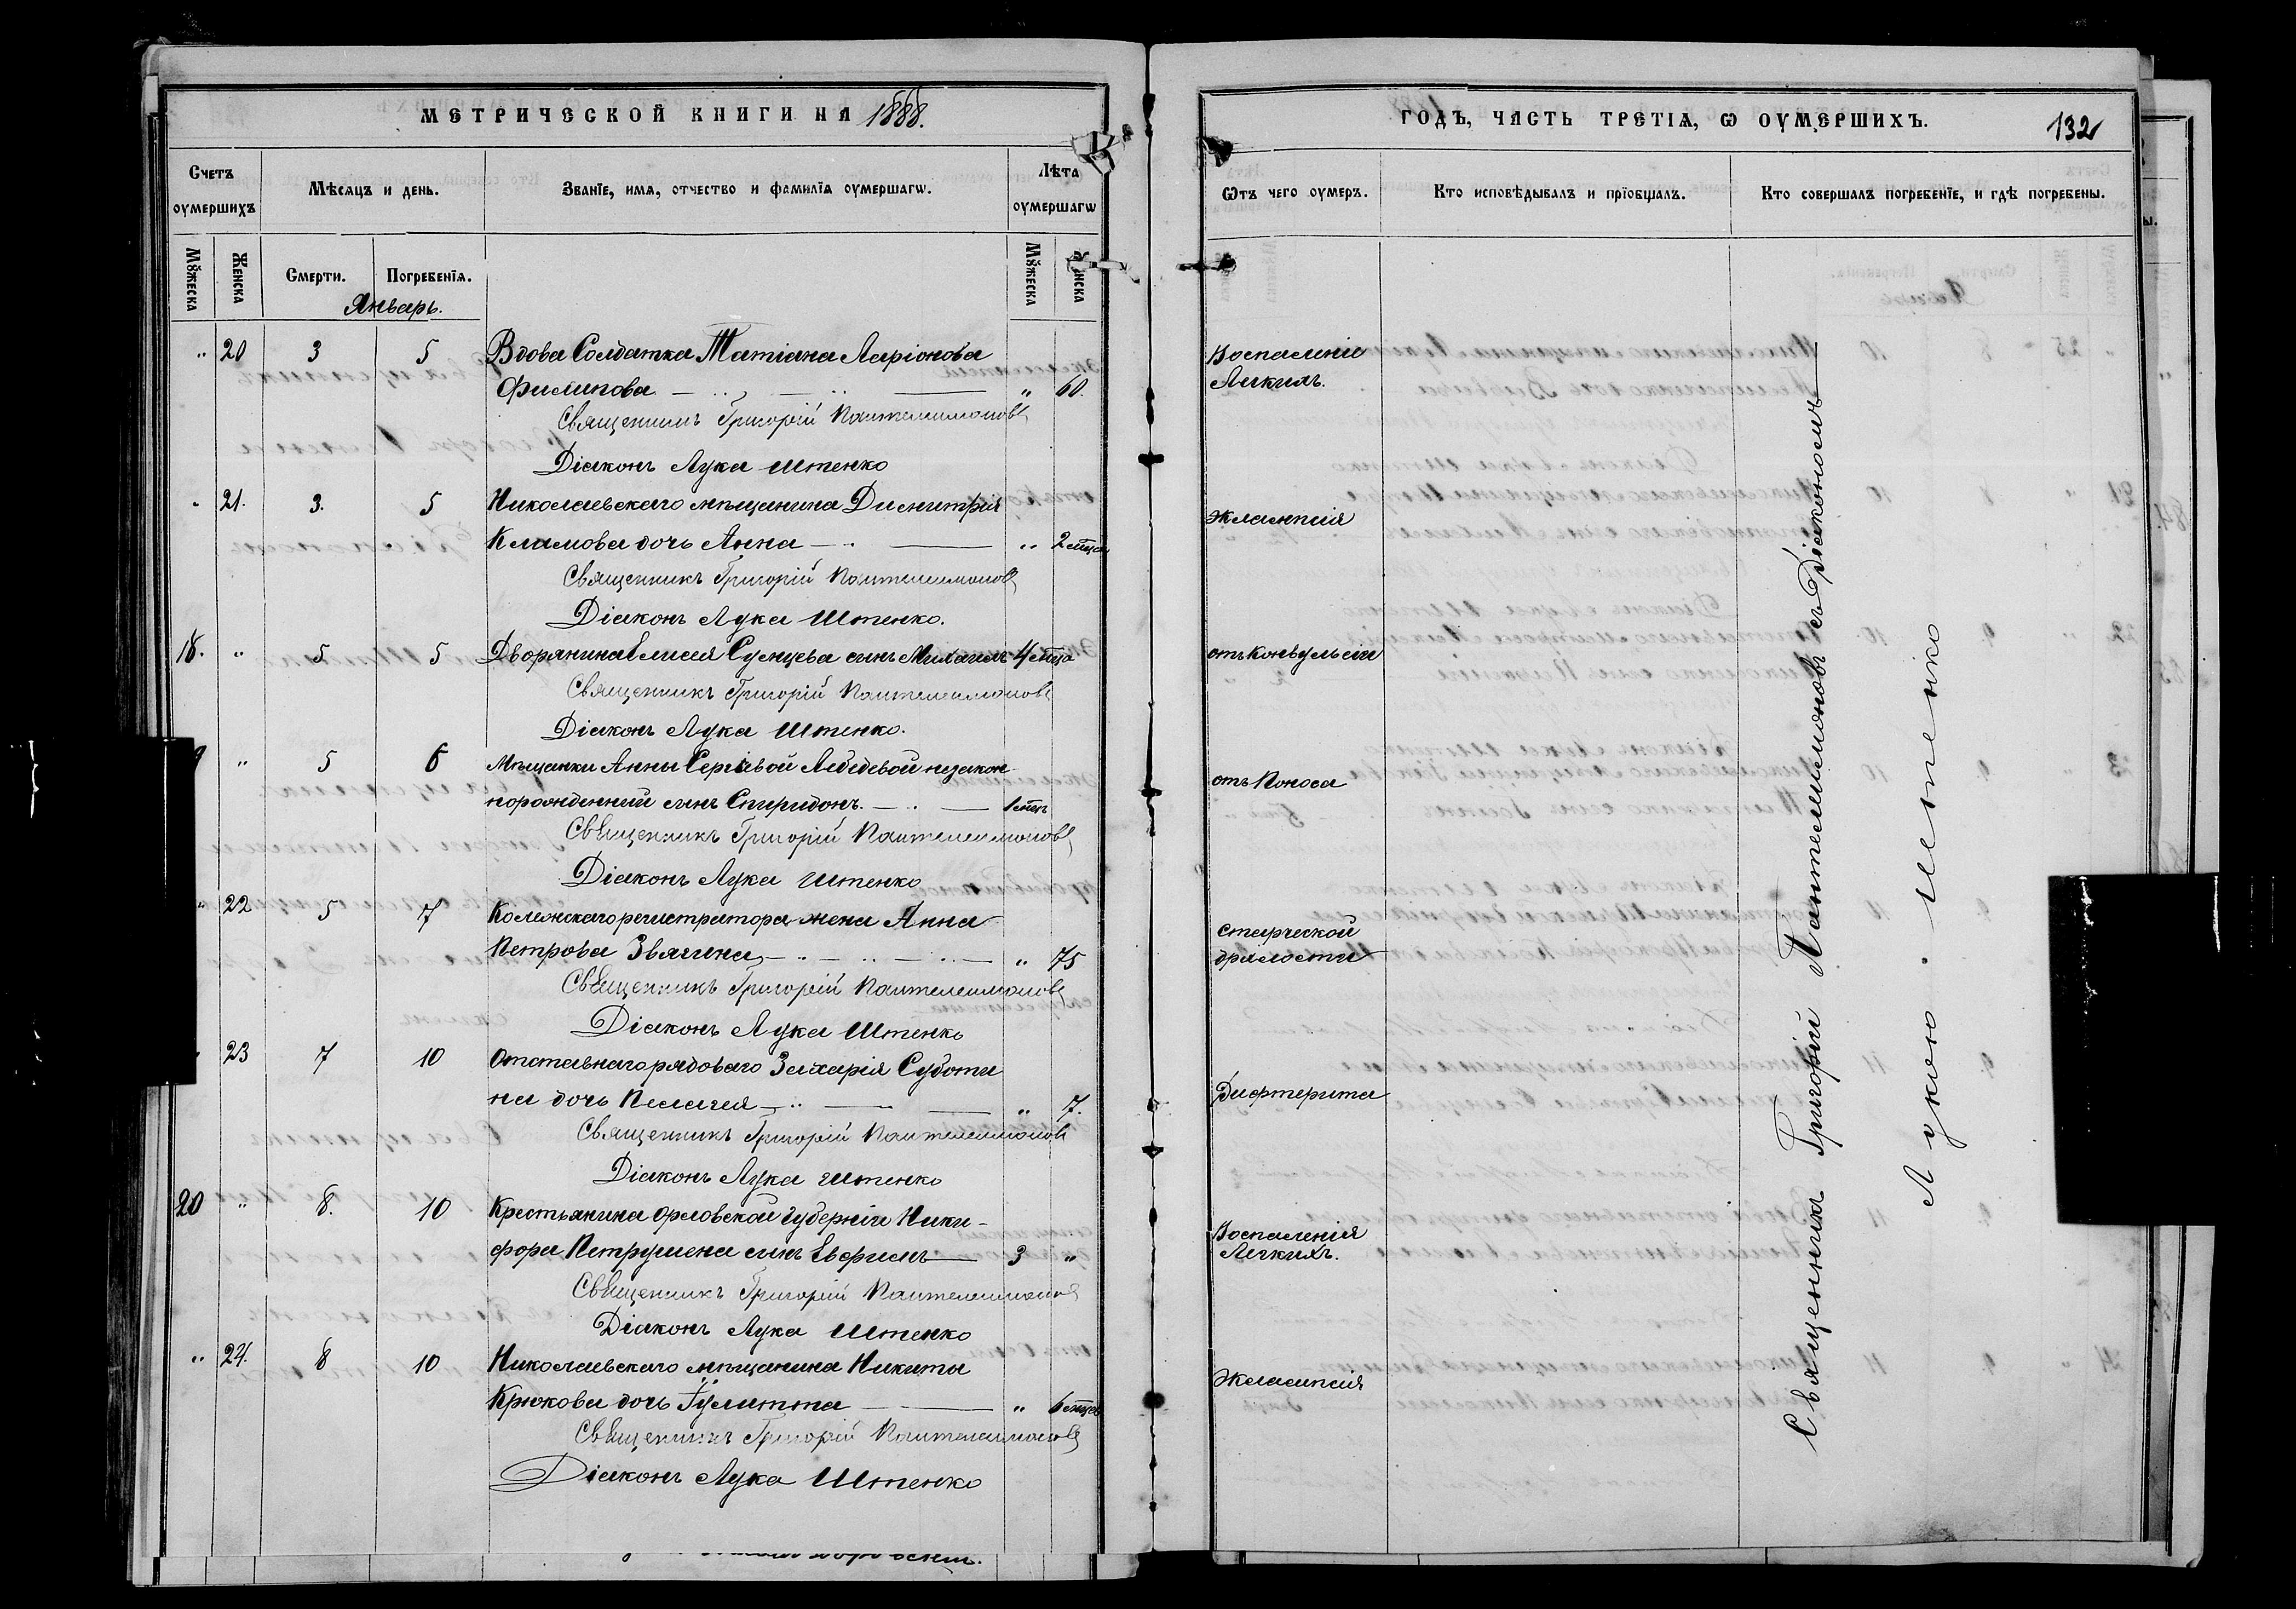 МЕТРИЧЕСКОЙ КНИГИ НА 1888.
Счетъ оумершихъ
Мѣсяцъ и день.
Званїе, имя, отчество и фамилїя оумершагѡ.
Лѣта оумершагѡ
Мꙋжеска
Женска
Смерти.
Погребенїя.
Мꙋжеска
Женска
Январь.
" 20 3 5 Вдова Солдатка Татіана Ларіонова
Филипова " 60.
Священникъ Григорій Пантелеимоновъ
Діаконъ Лука Штенко
" 21. 3. 5 Николаевскаго мѣщанина Димитрія
Климова дочь Анна " 2 мѣца
Священникъ Григорій Пантелеимоновъ
Діаконъ Лука Штенко.
18. " 5 5 Дворянина Елисея Сунцева сынъ Михаилъ 4 мѣца
Священникъ Григорій Пантелеимоновъ
Діаконъ Лука Штенко.
" 5 6 Мѣщанки Анны Сергіевой Лебедевой незакон-
норожденный сынъ Спиридонъ. 1 мѣц
Священникъ Григорій Пантелеимоновъ
Діаконъ Лука Штенко
" 22 5 7 Колежскаго регистратора жена Анна
Петрова Звягина " 75
Священникъ Григорій Пантелеимоновъ
Діаконъ Лука Штенко
23 7 10 Отставнаго рядоваго Захарія Суботи
на дочь Пелагея " 7.
Священникъ Григорій Пантелеимоновъ
Діаконъ Лука Штенко
20 " 8. 10 Крестьянина Орловской губерніи Ники-
фора Петрушена сынъ Евфимъ 3 "
Священникъ Григорій Пантелеимоновъ
Діаконъ Лука Штенко
" 24. 8 10 Николаевскаго мѣщанина Никиты
Крюкова дочь Іулитта " 6 мѣцев
Священникъ Григорій Пантелеимоновъ
Діаконъ Лука Штенко
ГОДЪ, ЧАСТЬ ТРЕТІѦ, Ѡ ОУМЕРШИХЪ.
132
Ѿтъ чего оумеръ.
Кто исповѣдывалъ и прїобщалъ.
Кто совершалъ погребенїе, и гдѣ погребены.
Воспаленіе
Легкихъ.
Эклампсія
отъ Конвульсіи
отъ Поноса
старческой
дряхлости
Дифтерита
Воспаленія
Легкихъ.
Эклампсія
Священникъ Григорій Пантелеимоновъ съ Діакономъ
Лукою Штенко